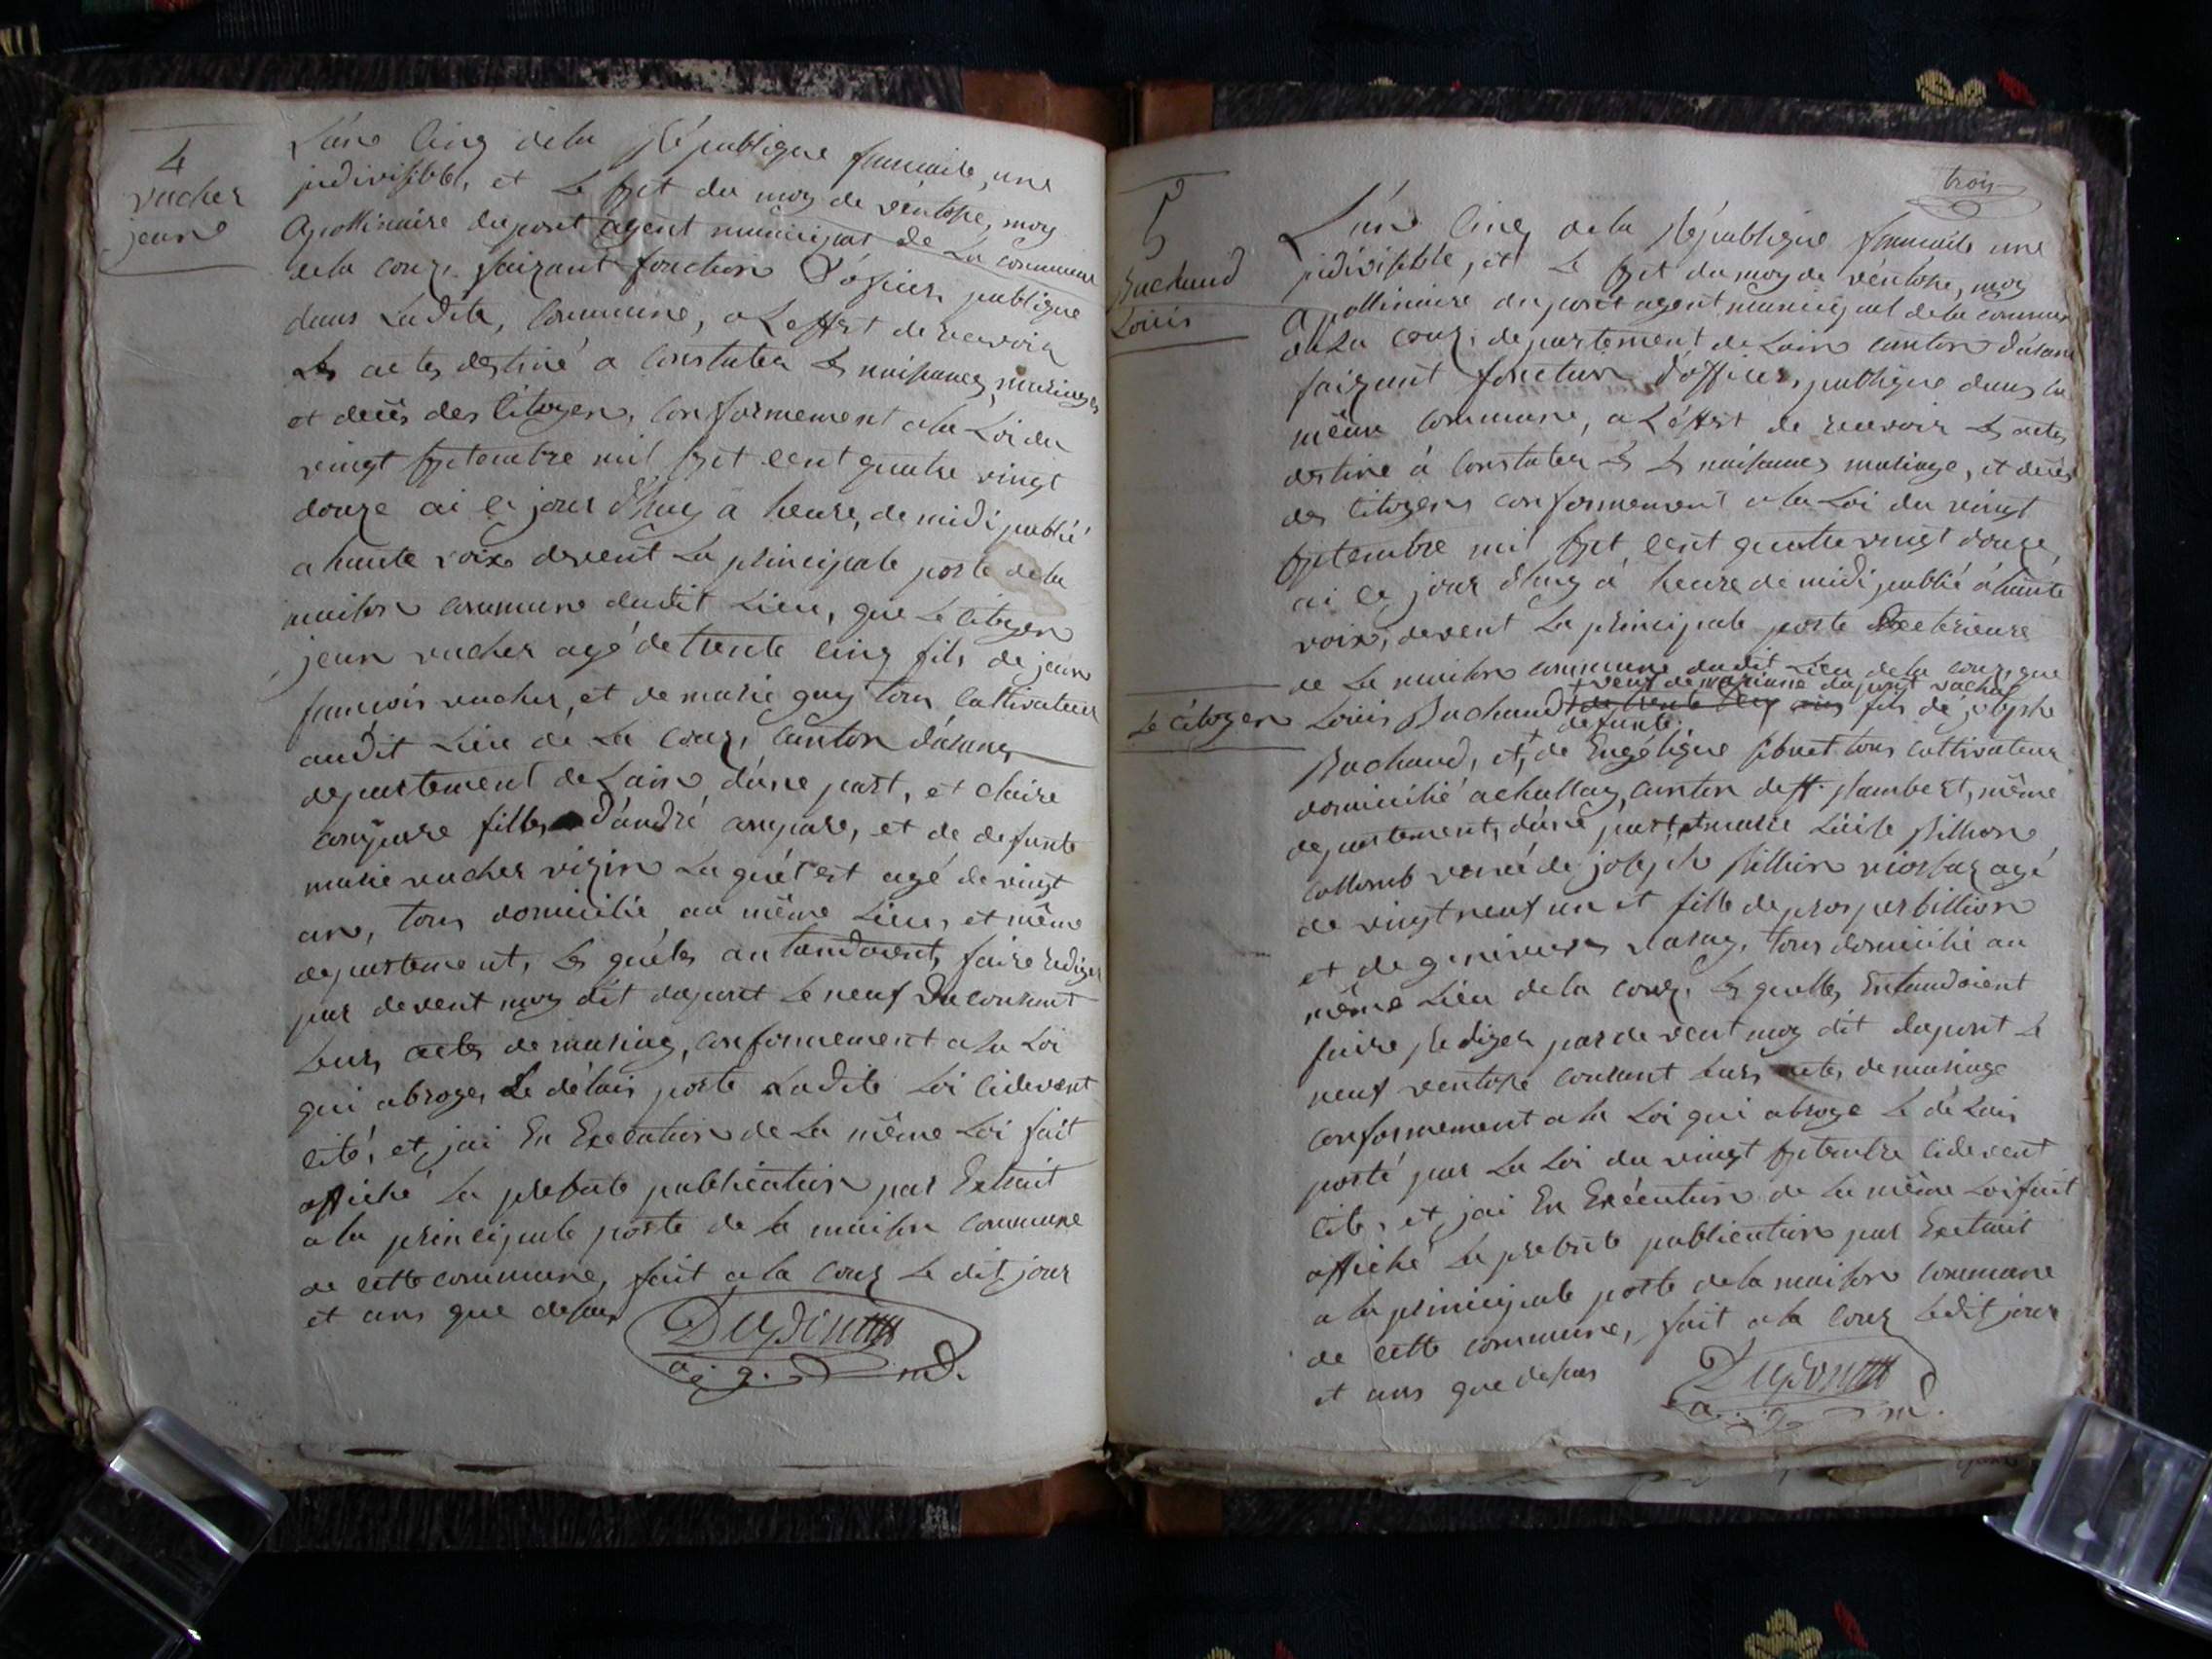 4
vacher
jean
L'ans cinq de la République francaise, une
jndivisible, et le sept du moy de véntose, moy
apollinaire dupont agent municipal de La commune
de la couz, faizant fonction d'oficier publique
dans Ladite, Commune, a Leffet de recevoir
Les actes destiné a Constater Les naissances, mariages
et decès des Citoyen, Conformement a la Loi du
vingt septembre mil sept cent quatre vingt
douze ai ce jour d'huy à heure, de midi publié
a haute voix devent La principale porte de la
maison commune dudit Lieu, que Le Citoyen
jean vacher agé de trente cinq fils de jean
francois vacher, et de marie guy tous Cultivateur
audit Lieu de La Couz, Canton d'
departement de Lain, d'une part, et claire
filles d'andré et de defunte
marie vacher vizin La quél est agé de vingt
ans, tous domicilié au même Lieu, et même
departement, Les quéles antandoient, faire rediger
par devent moy dit dupont Le neuf Du courant
Leurs actes de mariag, conformement a la Loi
qui abroges Le délais porte Ladite Loi cidevent
cité, et jai En Execution de La même Loi fait
affiché La presente publication par Extrait
a la principale porte de la maison Commune
de cette commune, fait a la Couz Le dit jour
et ans que desus
Dupont
a. g. m.
trois
5
Buchaud
Louis
L'ans Cinq de la République francaise une
jndivisible, et Le sept du moy de véntose, moy
apollinaire dupont agent municipal de la commune
de La couz, departement de Lain canton d'
faizant fonction d'officier publique dans la
même Commune, a L'effet de recevoir Les actes
destiné à Constater Les Les naisances mariage, et decès
des Citoyens conformement a la Loi du vingt
septembre mil sept cent quatre vingt douze,
ai ce jour d'huy à heure de midi publié à haute
voix, devent La principale porte Exterieure
de La maison commune dudit Lieu de la couz, que
+ veuf de mariane dupont vachat
Le Citoyen Louis Buchaud + de trente ans fils de joseph
defunte
Buchaud, et, de Engelique tous cultivateur
domicilié a canton de st. Rambert, même
departement, d'une part, et marie Billion
Collomb veuve de joseph Billion agé
de vingt neuf an et fille de prosper billion
et de genevieve tous domicilié au
même Lieu de la couz, Les quelles Entandoient
faire Rediger par de vent moy dit dupont Le
neuf ventose courant Leurs actes de mariage
conformement a la Loi qui abroge Le délais
porté par La Loi du vingt septembre cidevent
cité, et jai En Exécution de La même Loi fait
affiché La presente publication par Extrait
a la principale porte de la maison Commune
de cette commune, fait a la Couz Ledit jour
et ans que desus
Dupont
a. g. m.